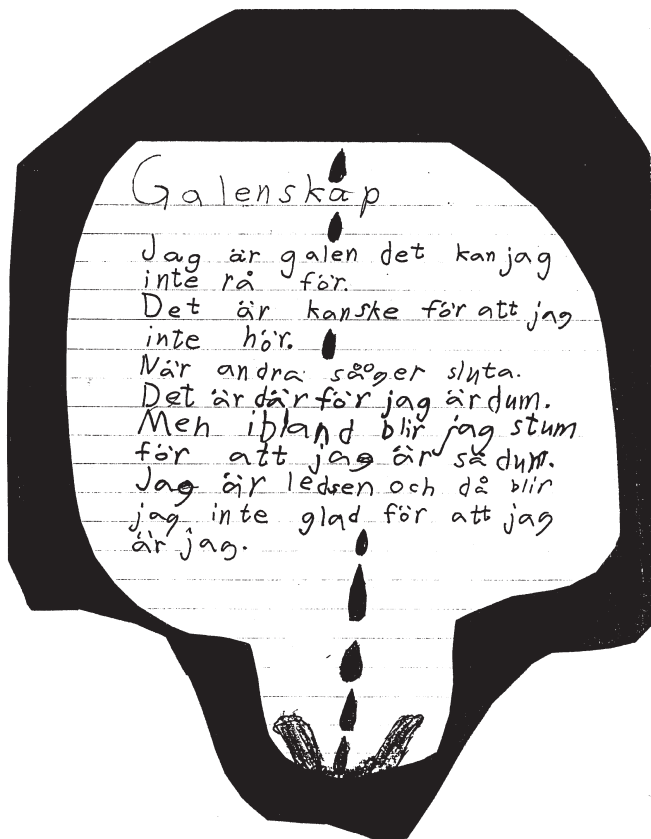 Galenskap
Jag är galen det kan jag
inte rå för.
Det är kanske för att jag
inte hör.
När andra såger sluta.
Det är där för jag är dum.
Men ibland blir jag stum
för att jag är så dum.
Jag är ledsen och då blir
jag inte glad för att jag
är jag.